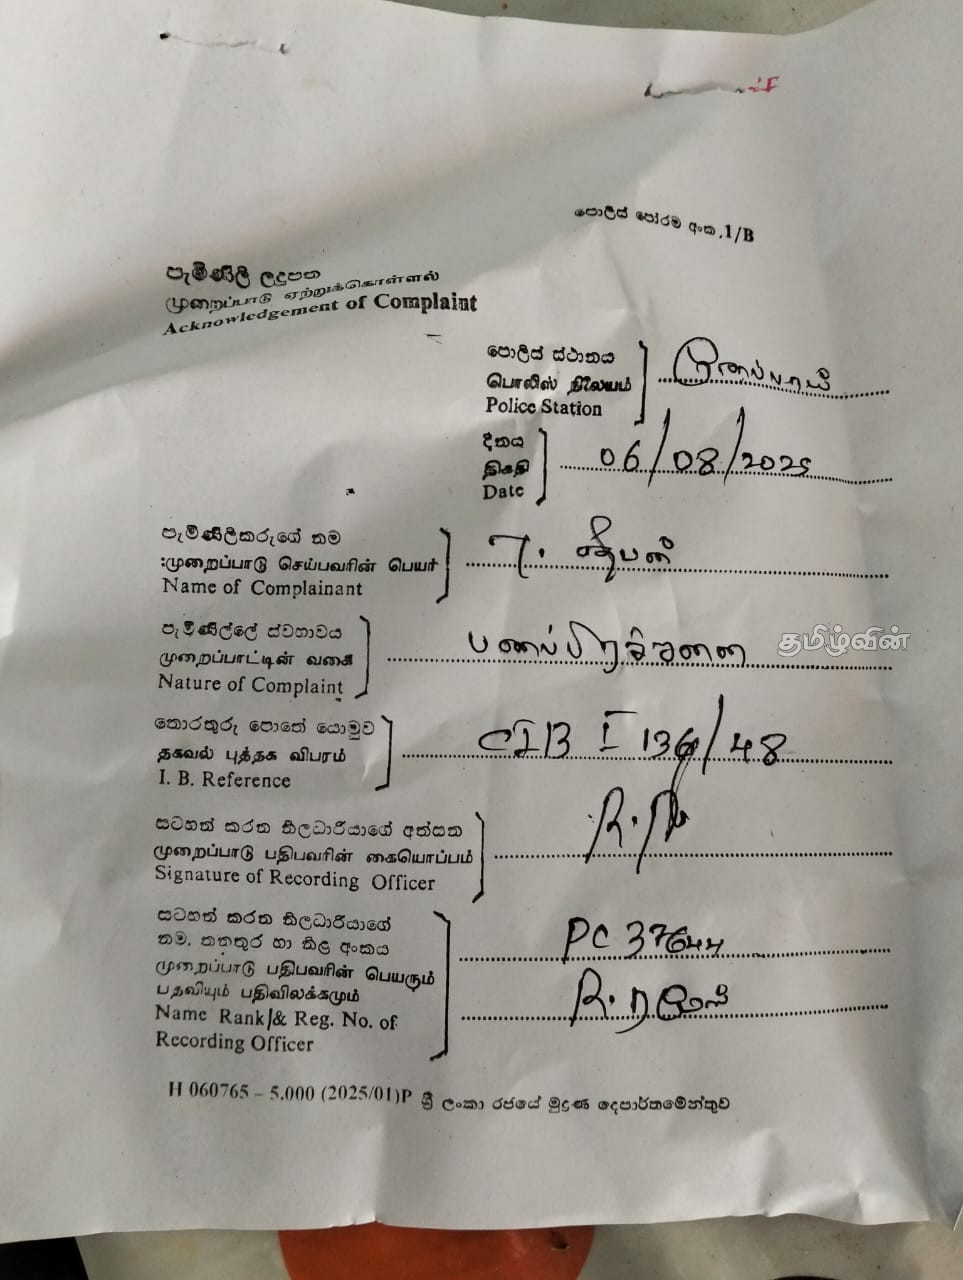 පොලිස් පෝරම අංක.1/B
පැමිණිලි ලදුපත
முறைப்பாடு ஏற்றுக்கொள்ளல்
Acknowledgement of Complaint
පොලිස් ස්ථානය
பொலிஸ் நிலையம்
Police Station
දිනය
திகதி
Date
06/08/2025
පැමිණිලිකරුගේ නම
முறைப்பாடு செய்பவரின் பெயர்
Name of Complainant
පැමිණිල්ලේ ස්වභාවය
முறைப்பாட்டின் வகை
Nature of Complaint
பணப்பிரச்சனை
தமிழ்வின்
තොරතුරු පොතේ යොමුව
தகவல் புத்தக விபரம்
I. B. Reference
CIB I 136/48
සටහන් කරන නිලධාරියාගේ අත්සන
முறைப்பாடு பதிபவரின் கையொப்பம்
Signature of Recording Officer
සටහන් කරන නිලධාරියාගේ
නම, තනතුර හා නිළ අංකය
முறைப்பாடு பதிபவரின் பெயரும்
பதவியும் பதிவிலக்கமும்
Name Rank & Reg. No. of
Recording Officer
PC 37644
H 060765 – 5.000 (2025/01)P ශ්‍රී ලංකා රජයේ මුද්‍රණ දෙපාර්තමේන්තුව